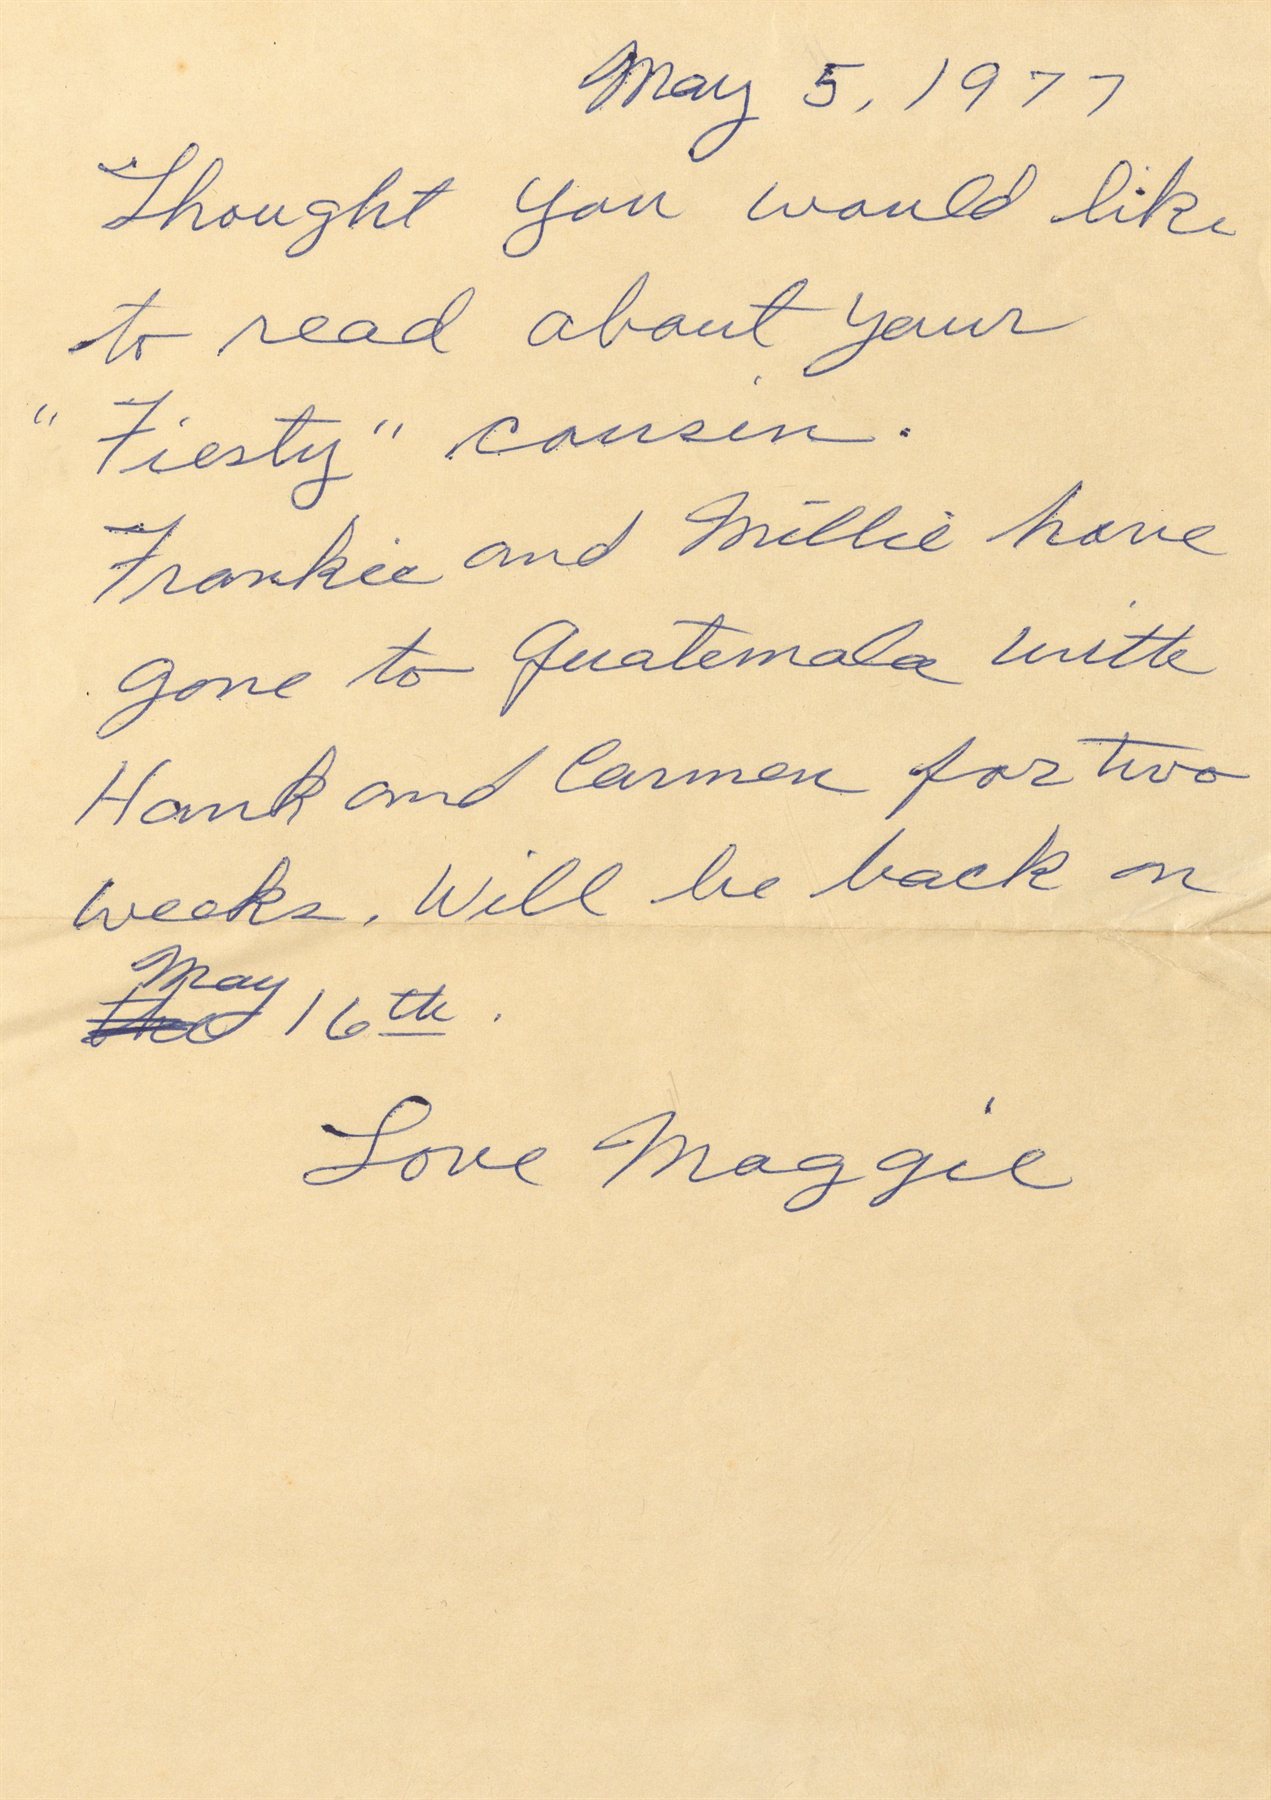 May 5, 1977
Thought you would like
to read about your
"Fiesty" cousin.
Frankie and Millie have
gone to Guatemala with
Hank and Carmen for two
weeks. Will be back on
May
the 16th.
Love Maggie